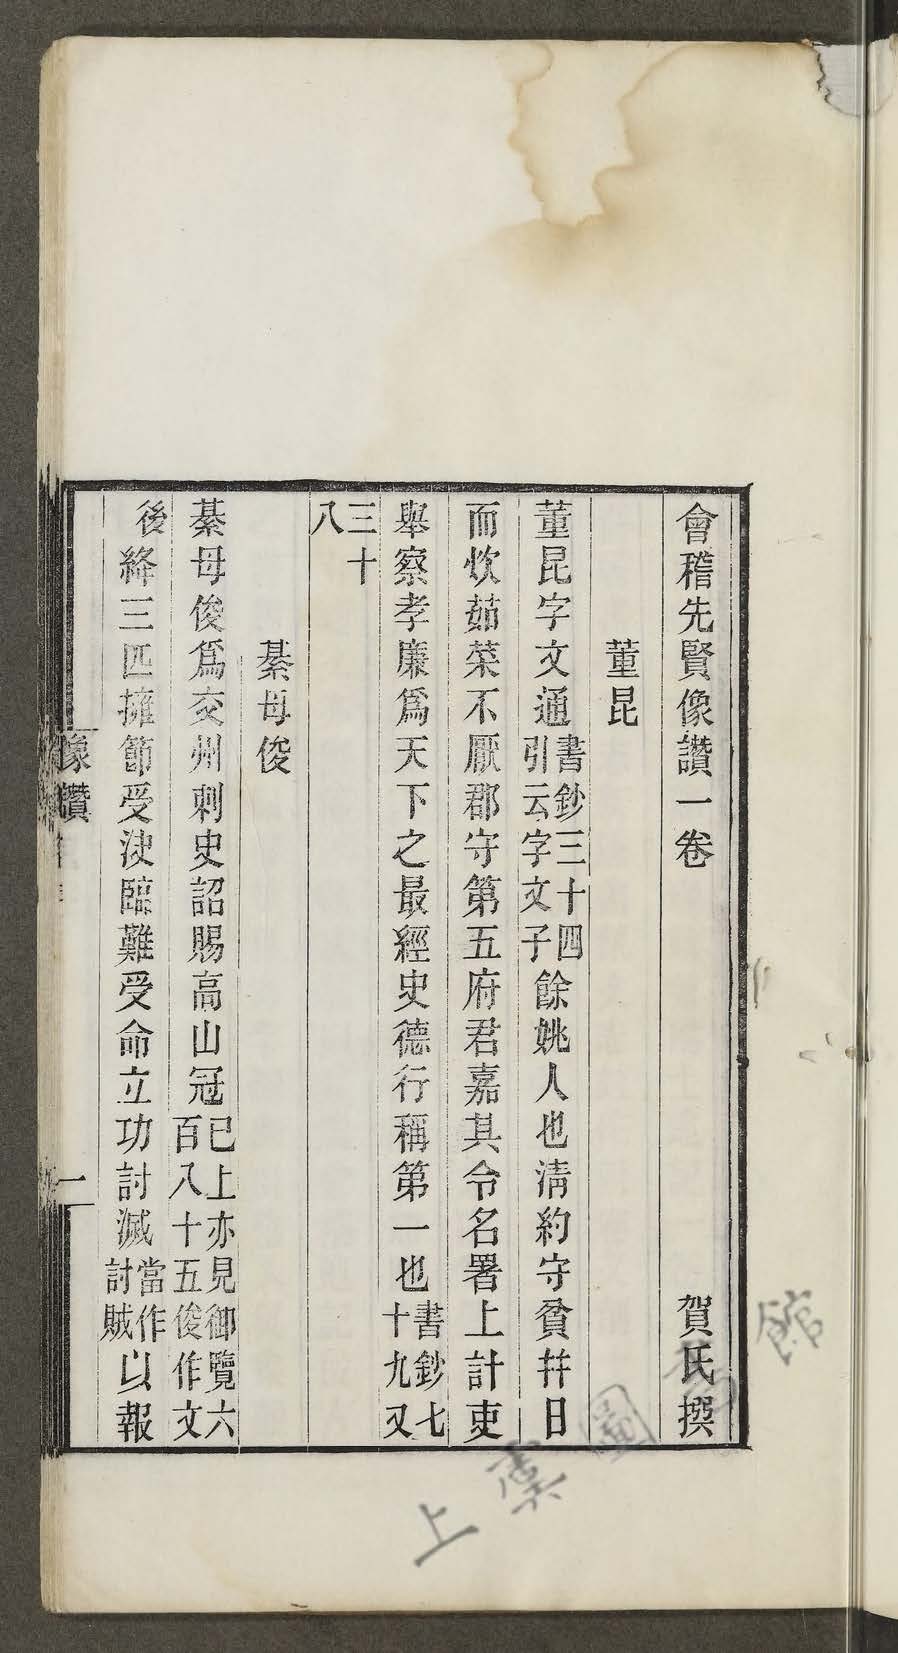 會稽先賢像讚一卷　賀氏撰
董昆
董昆字文通書鈔三十四引云字文子餘姚人也清約守貧幷日
而炊茹菜不厭郡守第五府君嘉其令名署上計吏
舉察孝廉爲天下之最經史德行稱第一也書鈔七十九又
三十八
綦毋俊
綦毋俊爲交州刺史詔賜高山冠已上亦見御覽六百八十五俊作文
後絳三匹擁節受決臨難受命立功討滅當作討賊以報
像讚
一
上虞圖書館